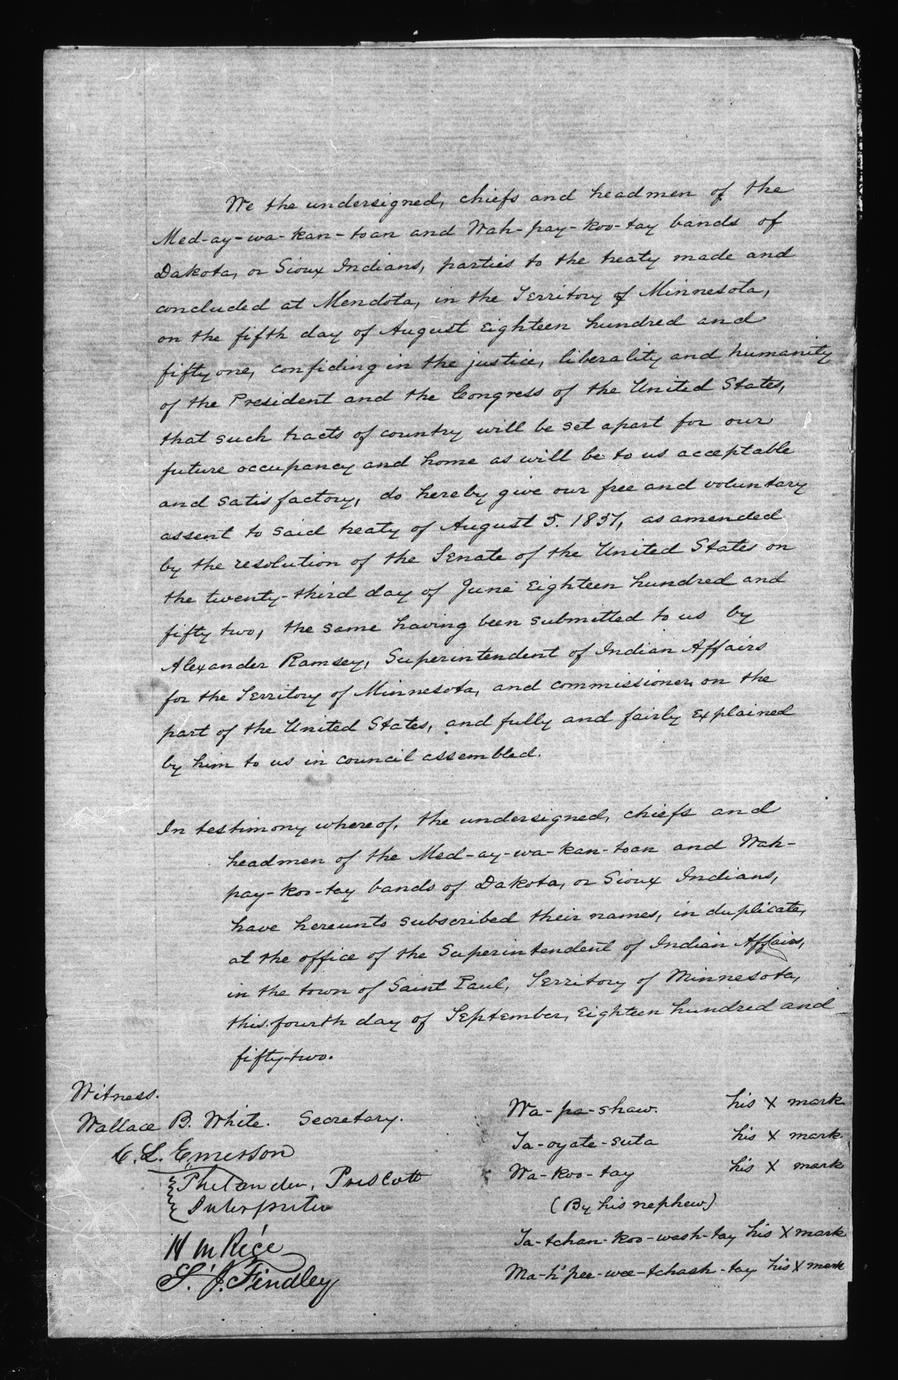 We the undersigned, chiefs and headmen of the
Med-ay-wa-kan-toan and Wah-pay-koo-tay bands of
Dakota, or Sioux Indians, parties to the treaty made and
concluded at Mendota, in the Territory of Minnesota,
on the fifth day of August Eighteen hundred and
fifty one, confiding in the justice, liberality and humanity
of the President and the Congress of the United States,
that such tracts of country will be set apart for our
future occupancy and home as will be to us acceptable
and satisfactory, do hereby give our free and voluntary
assent to said treaty of August 5. 1851, as amended
by the resolution of the Senate of the United States on
the twenty-third day of June Eighteen hundred and
fifty two, the same having been submitted to us by
Alexander Ramsey, Superintendent of Indian Affairs
for the Territory of Minnesota, and commissioner on the
part of the United States, and fully and fairly explained
by him to us in council assembled.
In testimony whereof, the undersigned, chiefs and
headmen of the Med-ay-wa-kan-toan and Wah-
pay-koo-tay bands of Dakota, or Sioux Indians,
have hereunto subscribed their names, in duplicate,
at the office of the Superintendent of Indian Affairs,
in the town of Saint Paul, Territory of Minnesota,
this fourth day of September, Eighteen hundred and
fifty-two.
Witness.
Wallace B. White. Secretary.
C. L. Emerson
Philander, Prescott
Interpreter
H M Rice
S. J. Findley
Wa-pa-shaw. his X mark
Ta-oyate-suta his X mark
Wa-koo-tay his X mark
(By his nephew)
Ta-tchan-koo-wash-tay his X mark
Ma-h'pee-wee-tchash-tay his X mark